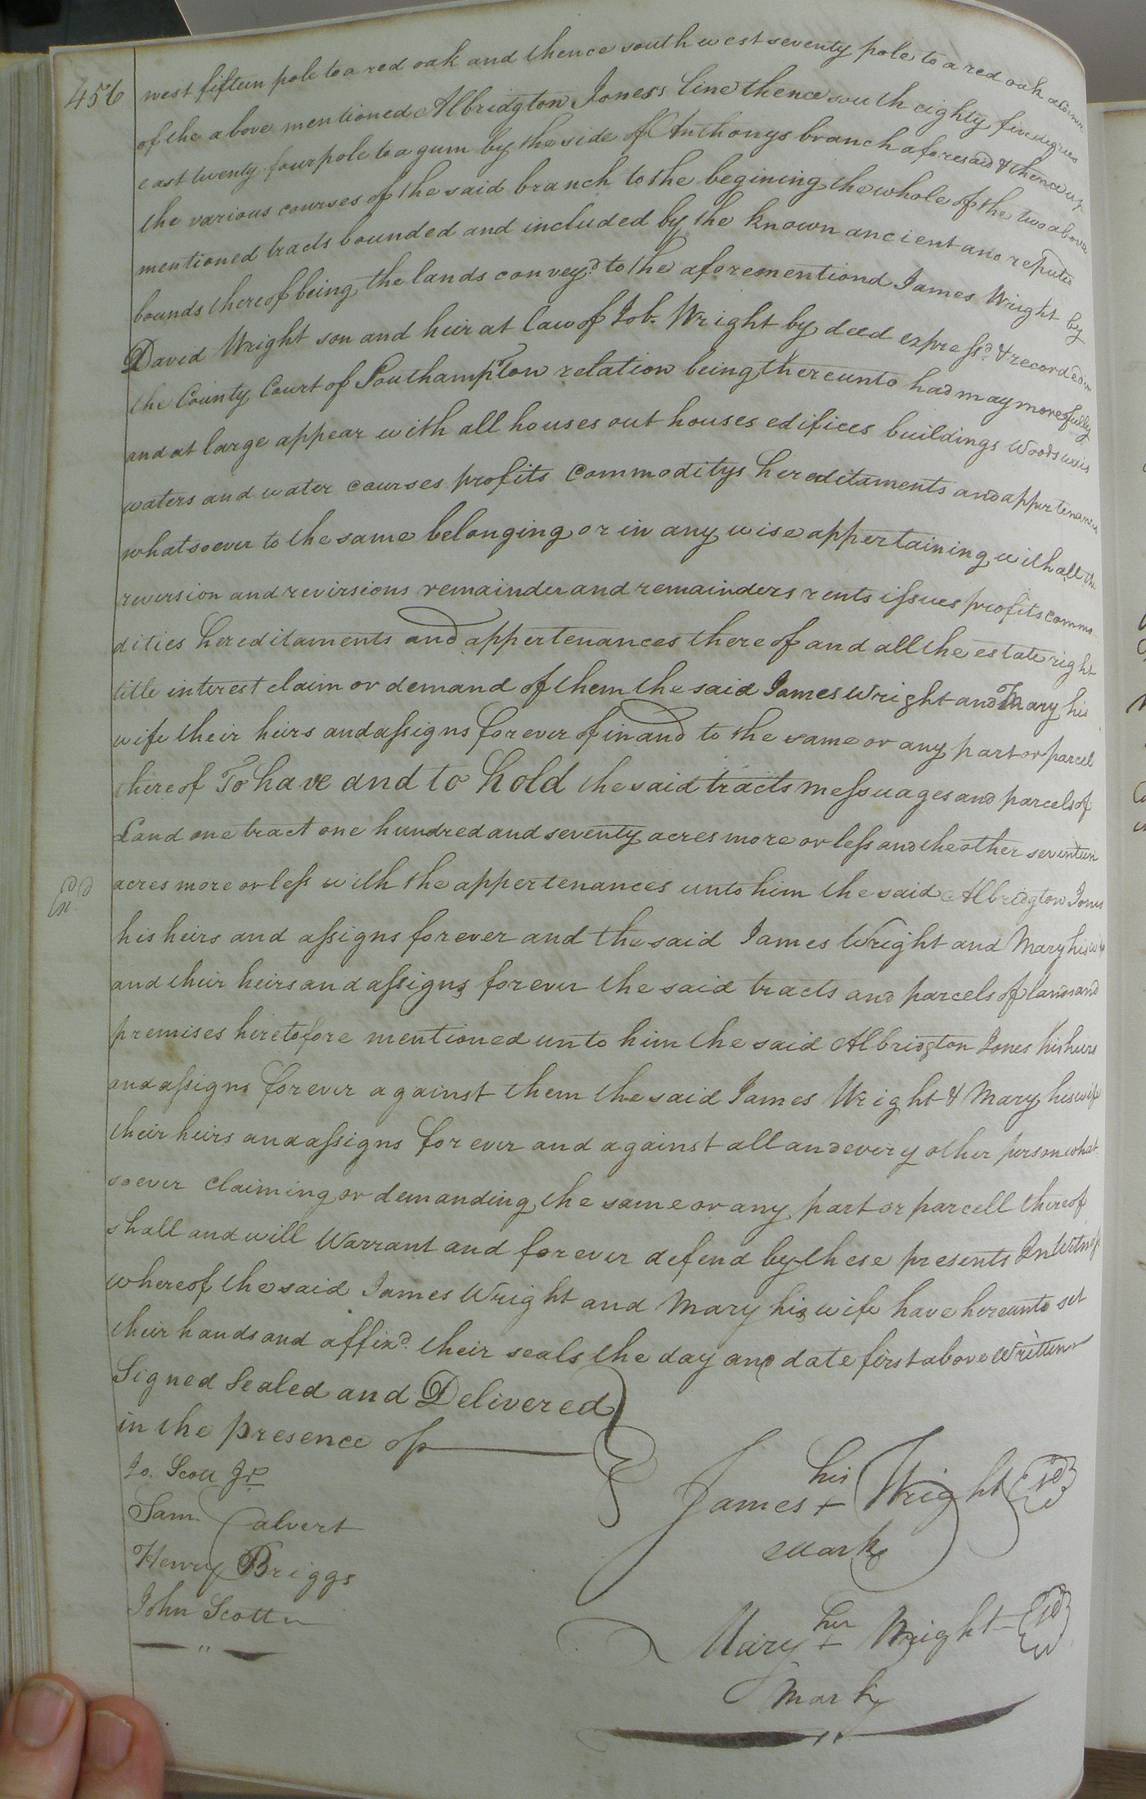 456
west fifteen pole to a red oak and thence south west seventy pole to a red oak a corner
of the above mentioned Albridgton Jones's line thence south eighty five degrees
east twenty four pole to a gum by the side of Anthonys branch aforesaid & thence up
the various courses of the said branch to the begining the whole of the two above
mentioned tracts bounded and included by the known ancient and reputed
bounds thereof being the lands convey'd to the aforementiond James Wright by
David Wright son and heir at law of Job. Wright by deed express'd & recorded in
the County Court of Southampton relation being thereunto had may more fully
and at large appear with all houses out houses edifices buildings Woods ways
waters and water courses profits Commoditys hereditaments and appertenances
whatsoever to the same belonging or in any wise appertaining with all the
reversion and reversions remainder and remainders rents issues profits commo-
dities hereditaments and appertenances thereof and all the estate right
title interest claim or demand of them the said James Wright and Mary his
wife their heirs and assigns forever of in and to the same or any part or parcel
thereof To have and to hold the said tracts messuages and parcels of
Land one tract one hundred and seventy acres more or less and the other seventeen
acres more or less with the appertenances unto him the said Albridgton Jones
his heirs and assigns forever and the said James Wright and Mary his wife
and their heirs and assigns forever the said tracts and parcels of lands and
premises heretofore mentioned unto him the said Albridgton Jones his heirs
and assigns forever against them the said James Wright & Mary his wife
their heirs and assigns for ever and against all and every other person what-
soever claiming or demanding the same or any part or parcell thereof
shall and will Warrant and forever defend by these presents In Witness
whereof the said James Wright and Mary his wife have hereunto set
their hands and affix'd their seals the day and date first above Written
Signed Sealed and Delivered
in the presence of
Jo. Scott Jr
Sam Calvert
Henry Briggs
John Scott
his
James + Wright
mark
her
Mary + Wright
mark